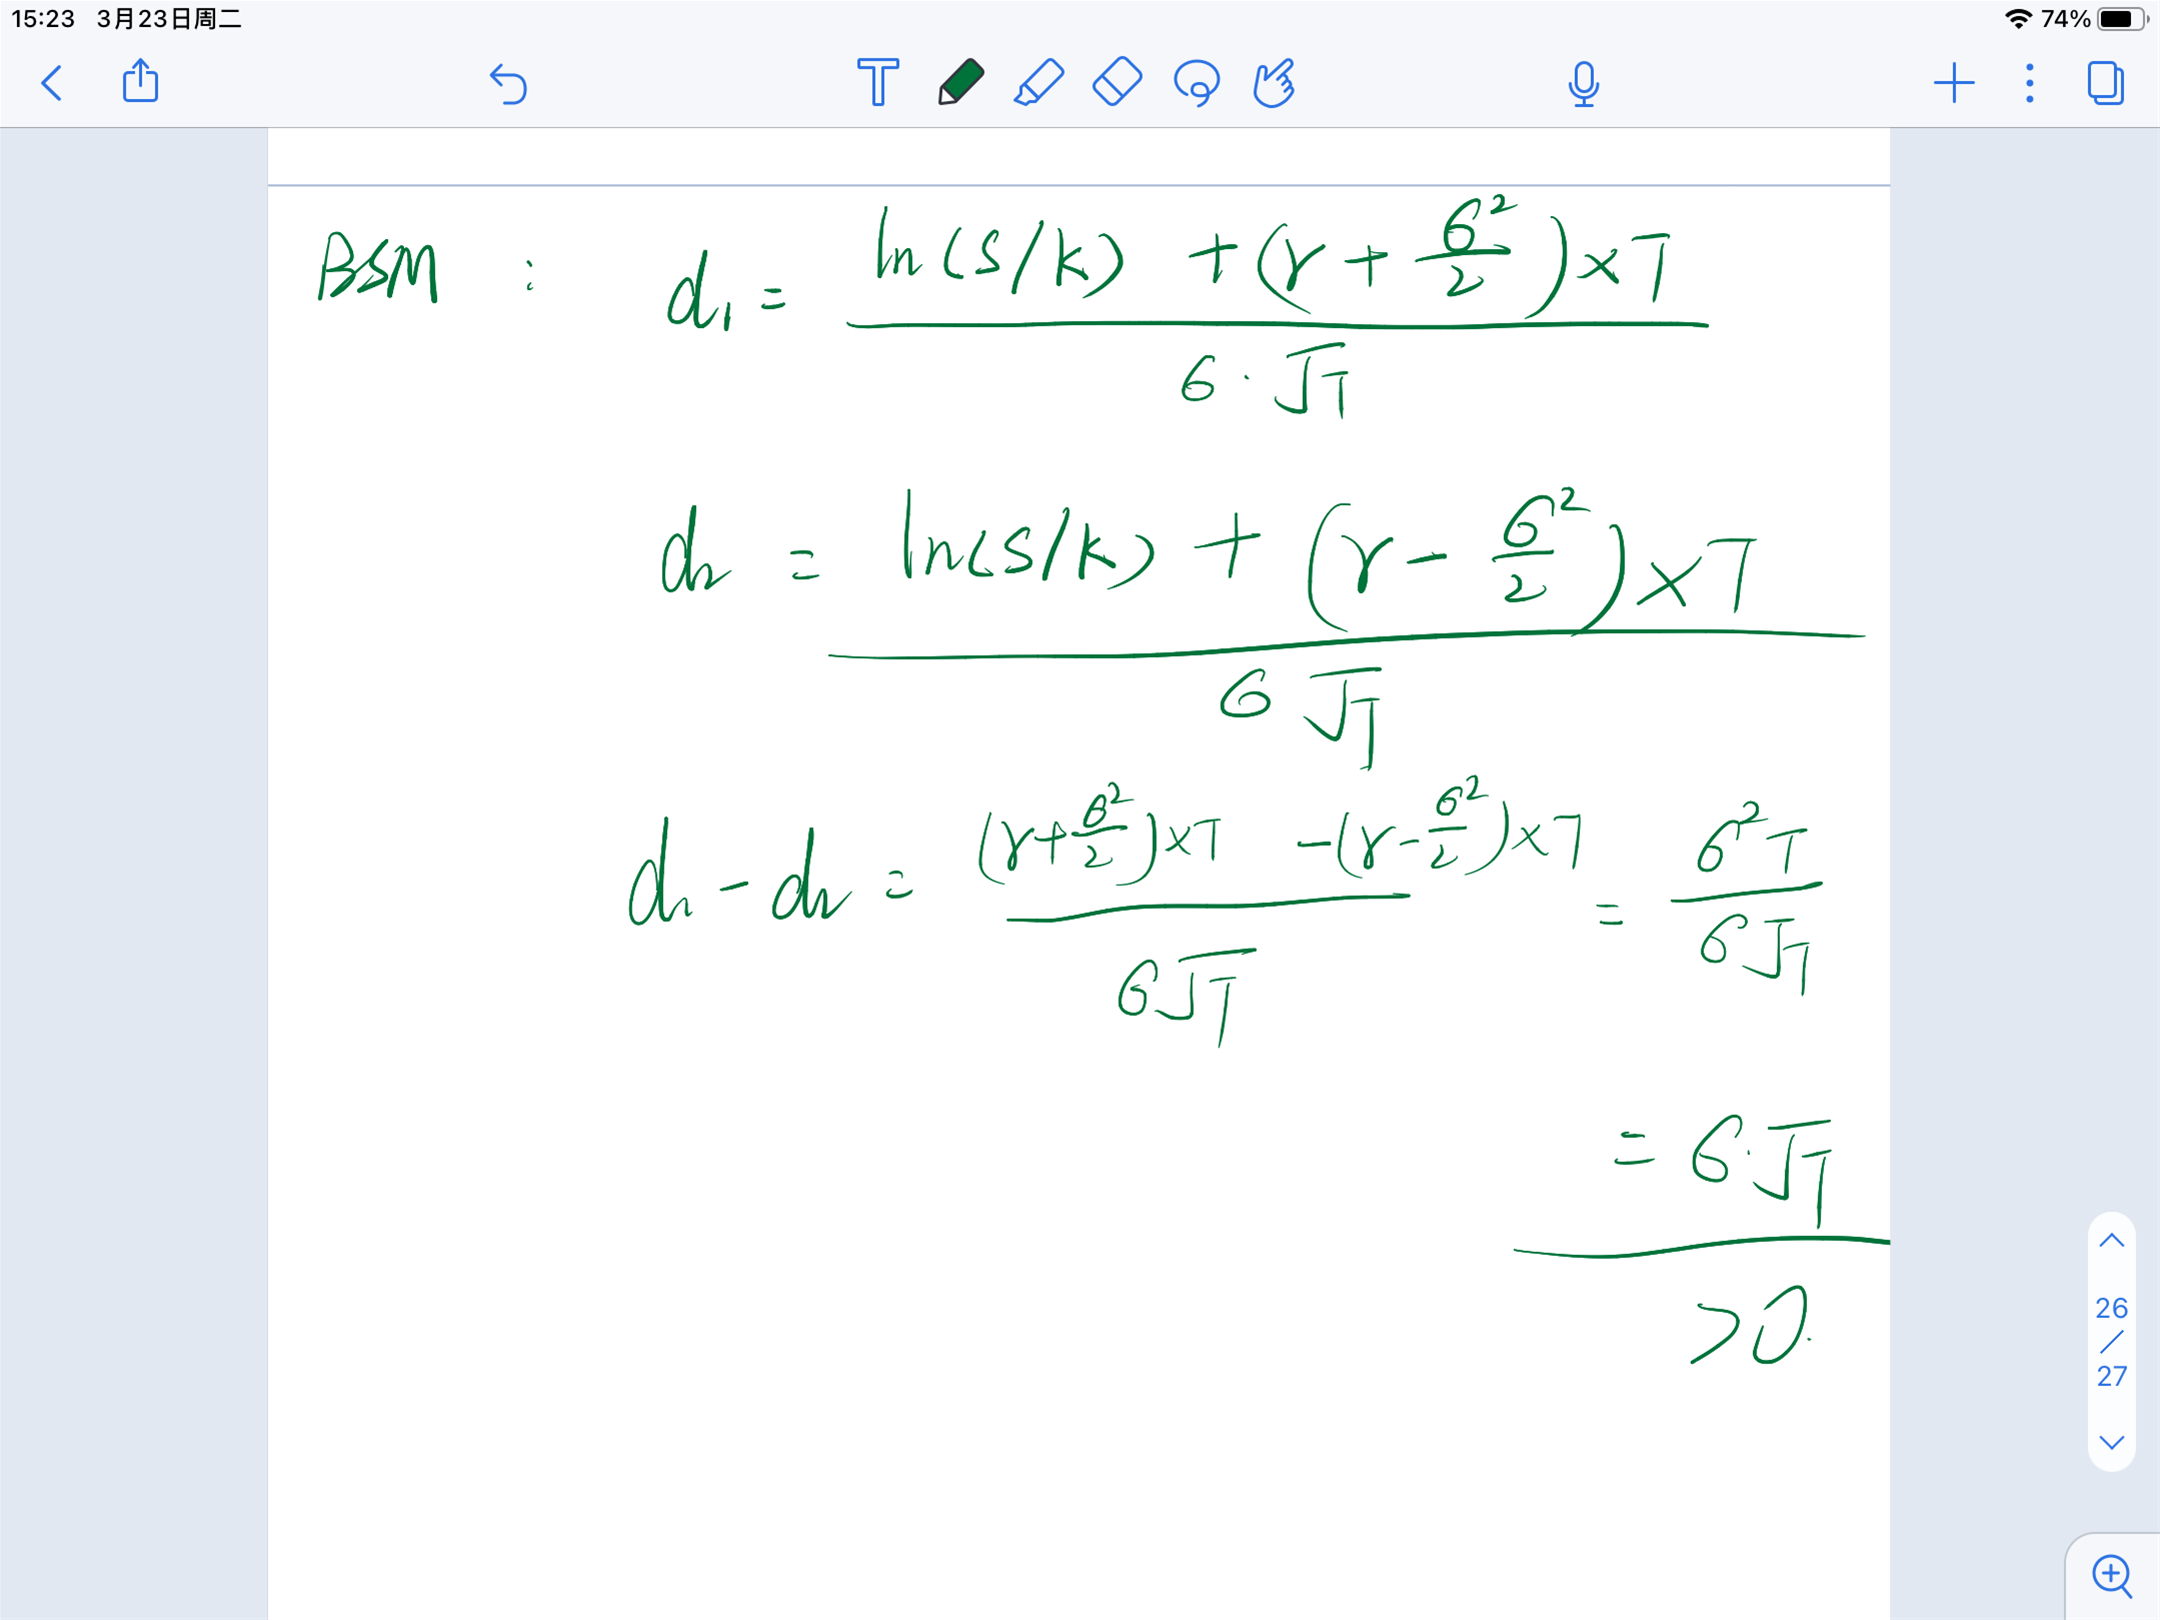 15:23 3月23日周二 74%
BSM : d₁ = (ln(S/K) + (r + σ²/2)×T) / (σ·√T)
d₂ = (ln(S/K) + (r - σ²/2)×T) / (σ√T)
d₁ - d₂ = ((r+σ²/2)×T -(r-σ²/2)×T) / (σ√T) = σ²T / (σ√T)
= σ·√T
>0.
26
/
27